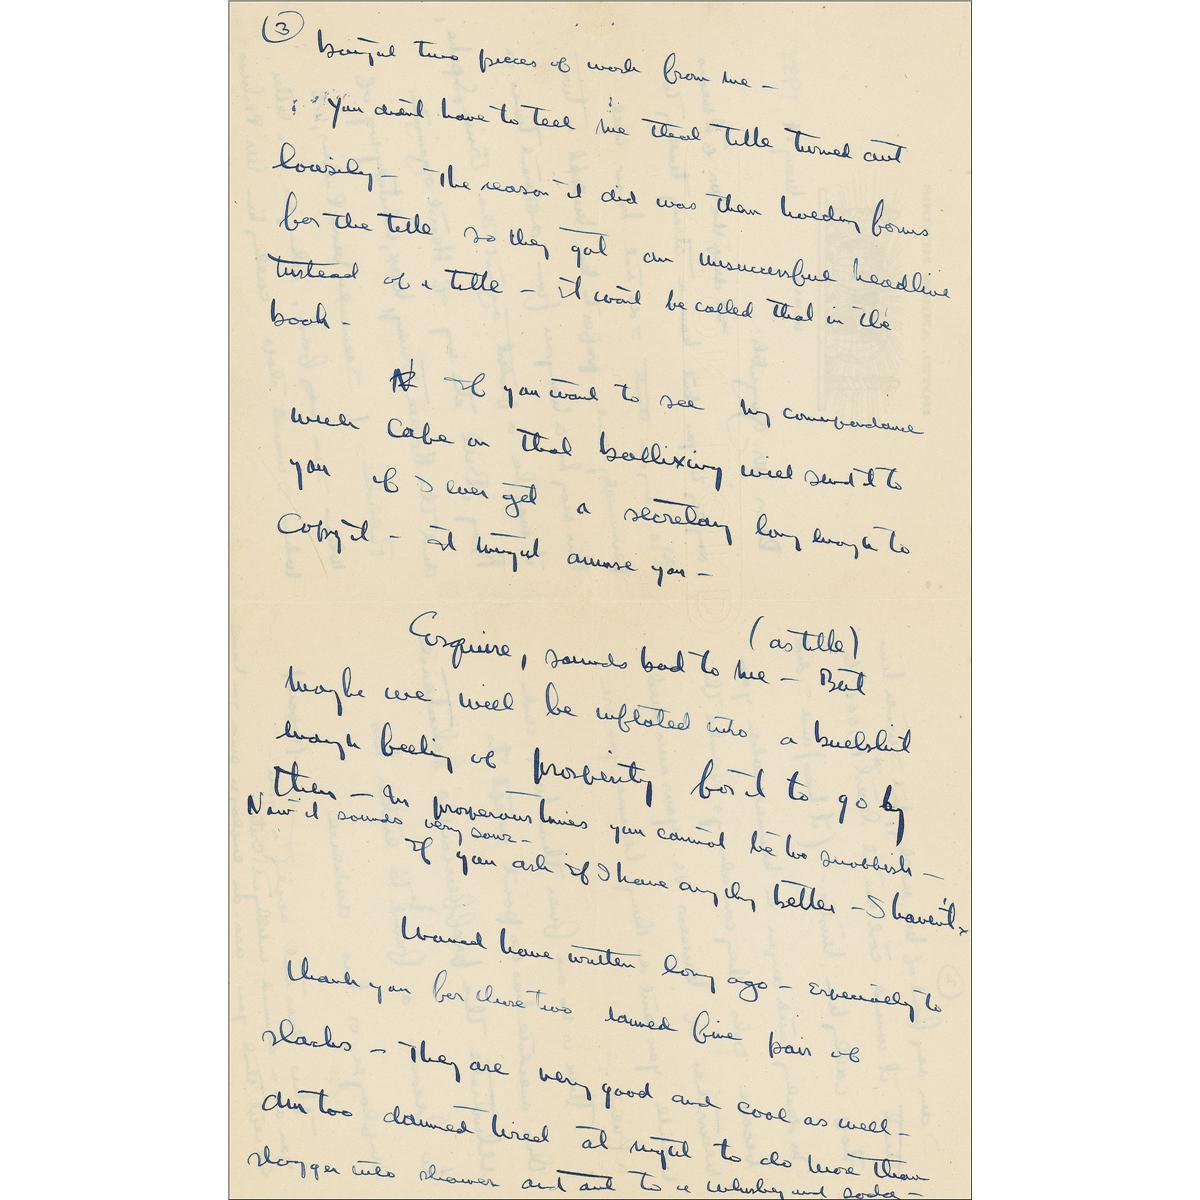 (3)
bought two pieces of work from me —
You didnt have to tell me that title turned out
lousily — The reason it did was them holding forms
for the title so they got an unsuccessful headline
instead of a title — it wont be called that in the
book —
If you want to see my correspondance
with Cape on that ballixing will send it to
you if I ever get a secretary long enough to
Copy it — It might amuse you —
(as title)
Esquire, sounds bad to me — But
maybe we will be inflated into a bullshit
enough feeling of prosperity for it to go by
then — In prosperous times you cannot be too snobbish —
Now it sounds very sour —
If you ask if I have anything better — I haven't.
Would have written long ago — Especially to
thank you for those two damned fine pair of
slacks — They are very good and cool as well —
Am too damned tired at night to do more than
stagger into shower and out to a whisky and soda —